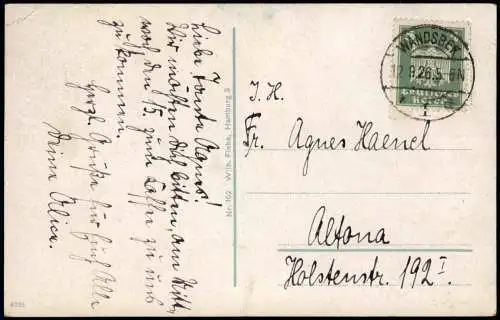 Liebe Tante Agnes!
Wir möchten Dich bitten, am Mitt-
woch den 15. zum Kaffee zu uns
zu kommen.
Herzl. Grüße für Euch Alle
Deine Alice.
Nr. 102 Wilh. Fiebe, Hamburg 5
WANDSBEK
12.8.26.5-6N
DEUTSCHES
REICH
I. H.
Fr. Agnes Haenel
Altona
Holstenstr. 192 I.